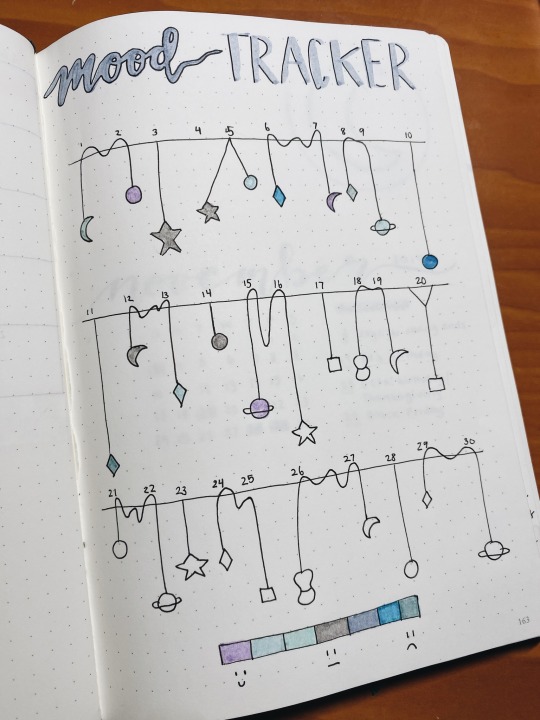 mood TRACKER
1 2 3 4 5 6 7 8 9 10
11 12 13 14 15 16 17 18 19 20
21 22 23 24 25 26 27 28 29 30
163